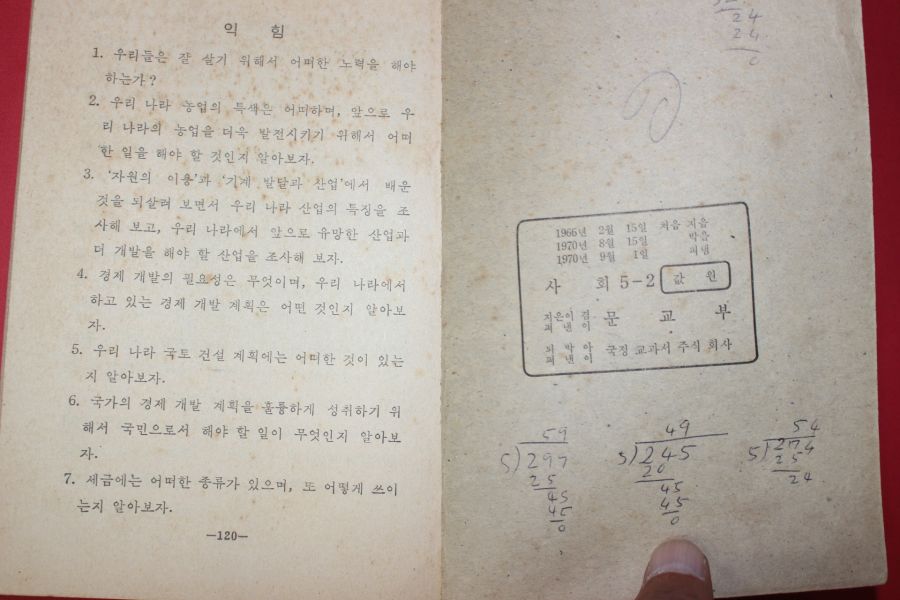 익 힘
1. 우리들은 잘 살기 위해서 어떠한 노력을 해야
하는가?
2. 우리 나라 농업의 특색은 어떠하며, 앞으로 우
리 나라의 농업을 더욱 발전시키기 위해서 어떠
한 일을 해야 할 것인지 알아보자.
3. '자원의 이용'과 '기계 발달과 산업'에서 배운
것을 되살려 보면서 우리 나라 산업의 특징을 조
사해 보고, 우리 나라에서 앞으로 유망한 산업과
더 개발을 해야 할 산업을 조사해 보자.
4. 경제 개발의 필요성은 무엇이며, 우리 나라에서
하고 있는 경제 개발 계획은 어떤 것인지 알아보
자.
5. 우리 나라 국토 건설 계획에는 어떠한 것이 있는
지 알아보자.
6. 국가의 경제 개발 계획을 훌륭하게 성취하기 위
해서 국민으로서 해야 할 일이 무엇인지 알아보
자.
7. 세금에는 어떠한 종류가 있으며, 또 어떻게 쓰이
는지 알아보자.
—120—
24
24
0
1966년 2월 15일 처음 지음
1970년 8월 15일 박음
1970년 9월 1일 펴냄
사 회 5-2 값 원
지은이 겸
펴 낸 이 문 교 부
되 박 아
펴 낸 이 국정 교과서 주식 회사
59
5)297
25
45
45
0
49
5)245
20
45
45
0
54
5)274
25
24